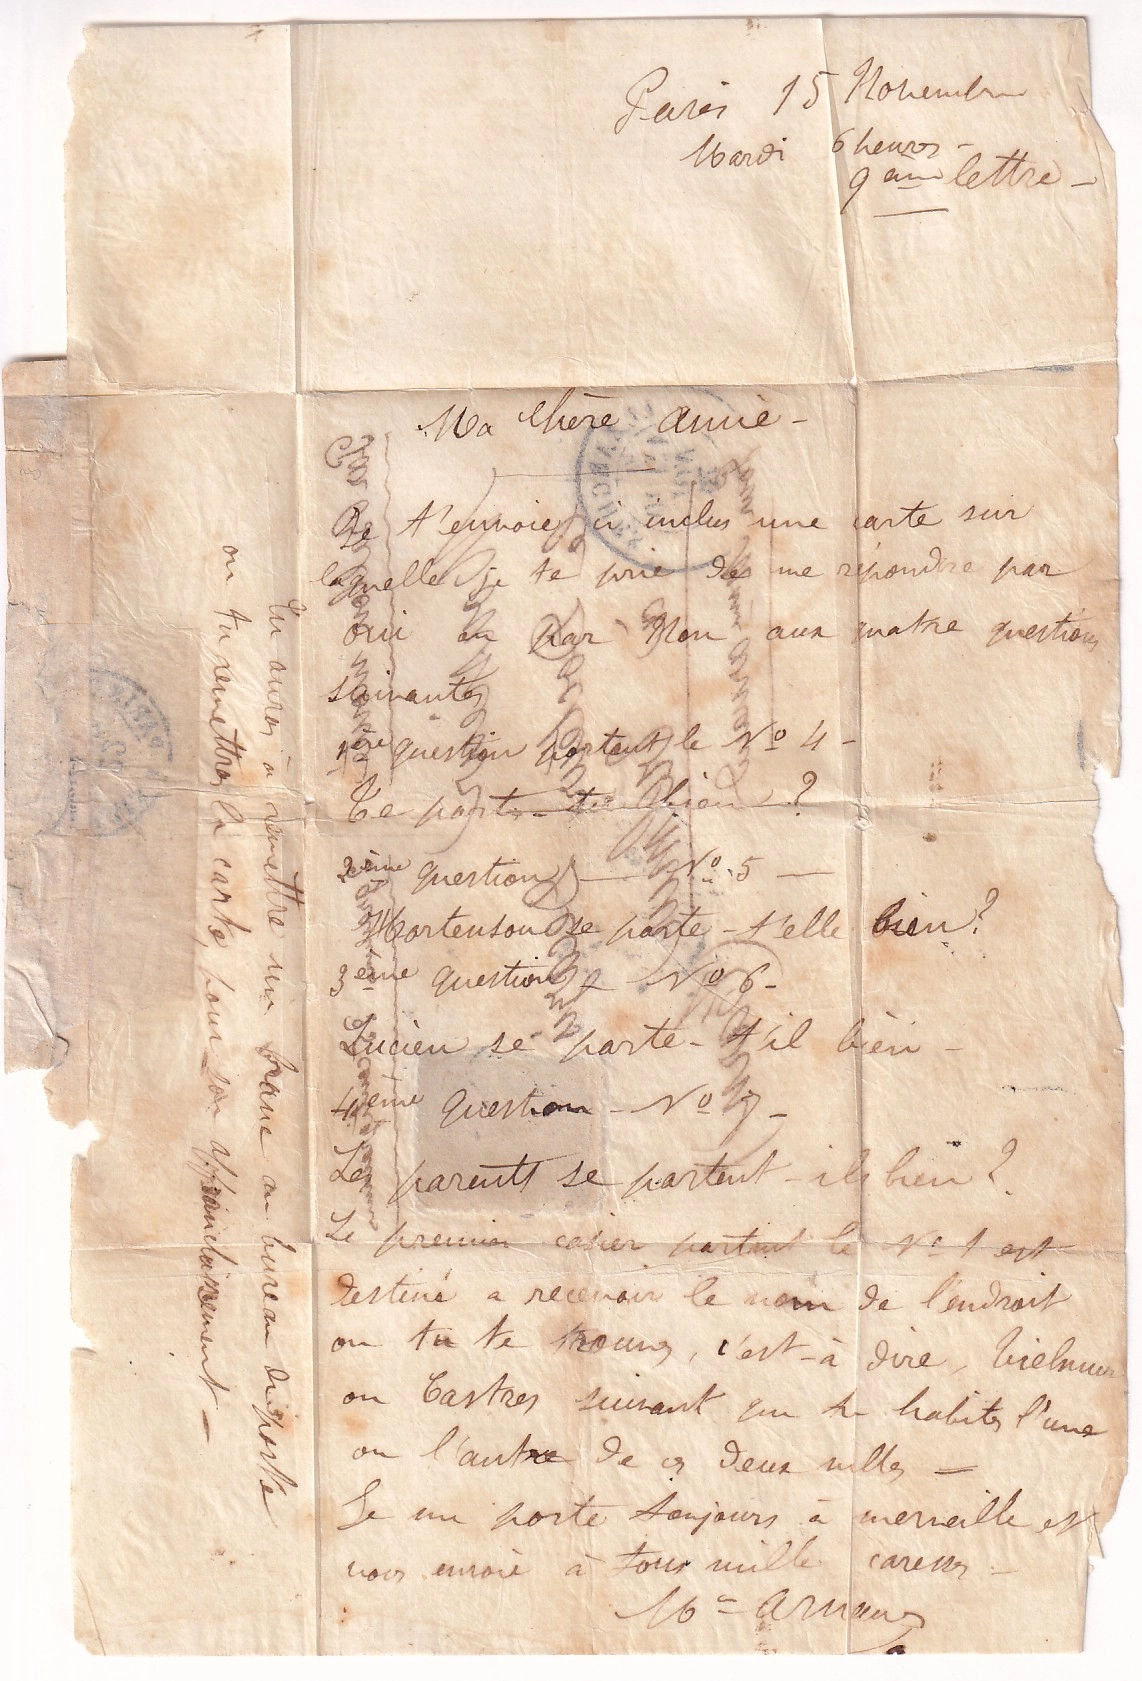 Paris 15 Novembre
Mardi 6 heures -
9 ème lettre -
Ma Chère Amie -
Je t'envoie ci inclus une carte sur
laquelle je te prie de me répondre par
oui ou par Non aux quatre questions
suivantes
1ère question portant le No 4 -
Te portes-tu bien ?
2ème question No 5 -
se porte-t'elle bien ?
3ème question le No 6 -
Lucien se porte-t'il bien -
4ème question - No 7 -
Les parents se portent-ils bien ?
Le premier casier portant le No 1 est
destiné a recevoir le nom de l'endroit
ou tu te trouves, c'est-à dire, Vielmur
ou Castres suivant que tu habites l'une
ou l'autre de ces deux villes -
Je me porte toujours à merveille et
vous envoie à tous mille caresses -
Tu auras à remettre un franc au bureau de poste
ou tu remettras la carte, pour son affranchissement -